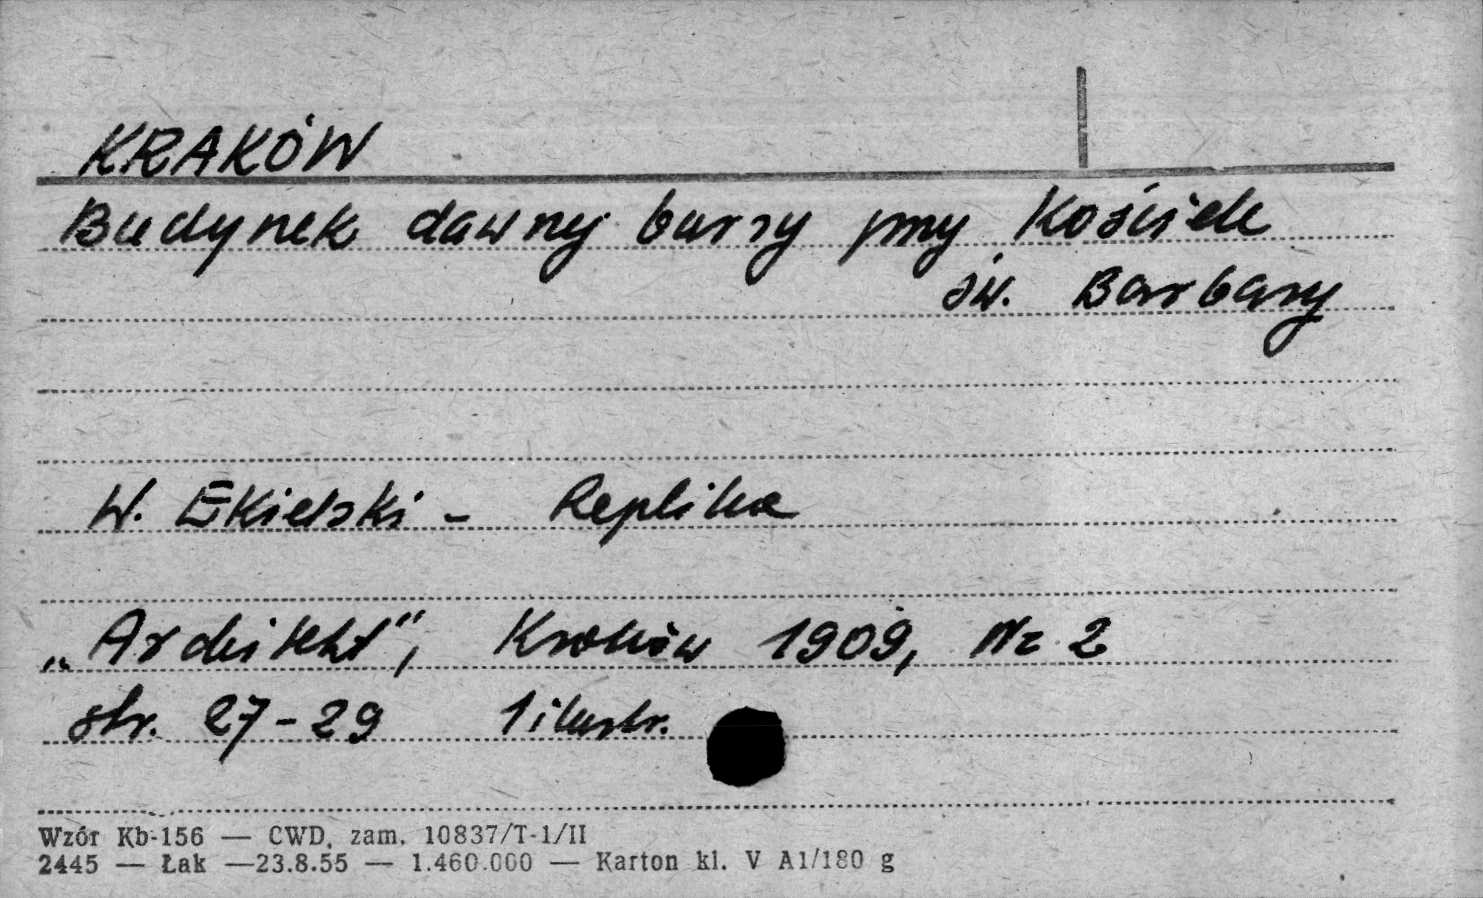 KRAKÓW
Budynek dawnej bursy przy Kościele
św. Barbary
W. Ekielski - Replika
„Architekt", Kraków 1909, Nr 2
str. 27-29 1 ilustr.
Wzór Kb-156 — CWD, zam. 10837/T-1/II
2445 — Łak —23.8.55 — 1.460.000 — Karton kl. V A1/180 g